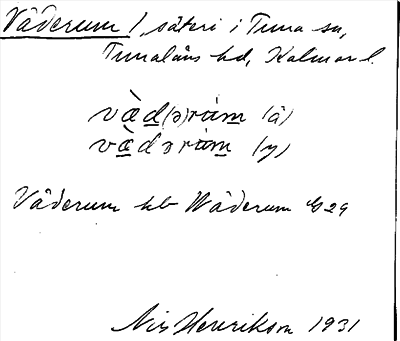 Väderum /, säteri i Tuna sn,
Tunaläns hd, Kalmar l.
vàd(ə)rùm (ä)
vàdərùm (y)
Väderum hb Wäderum G29
Nils Henrikson 1931